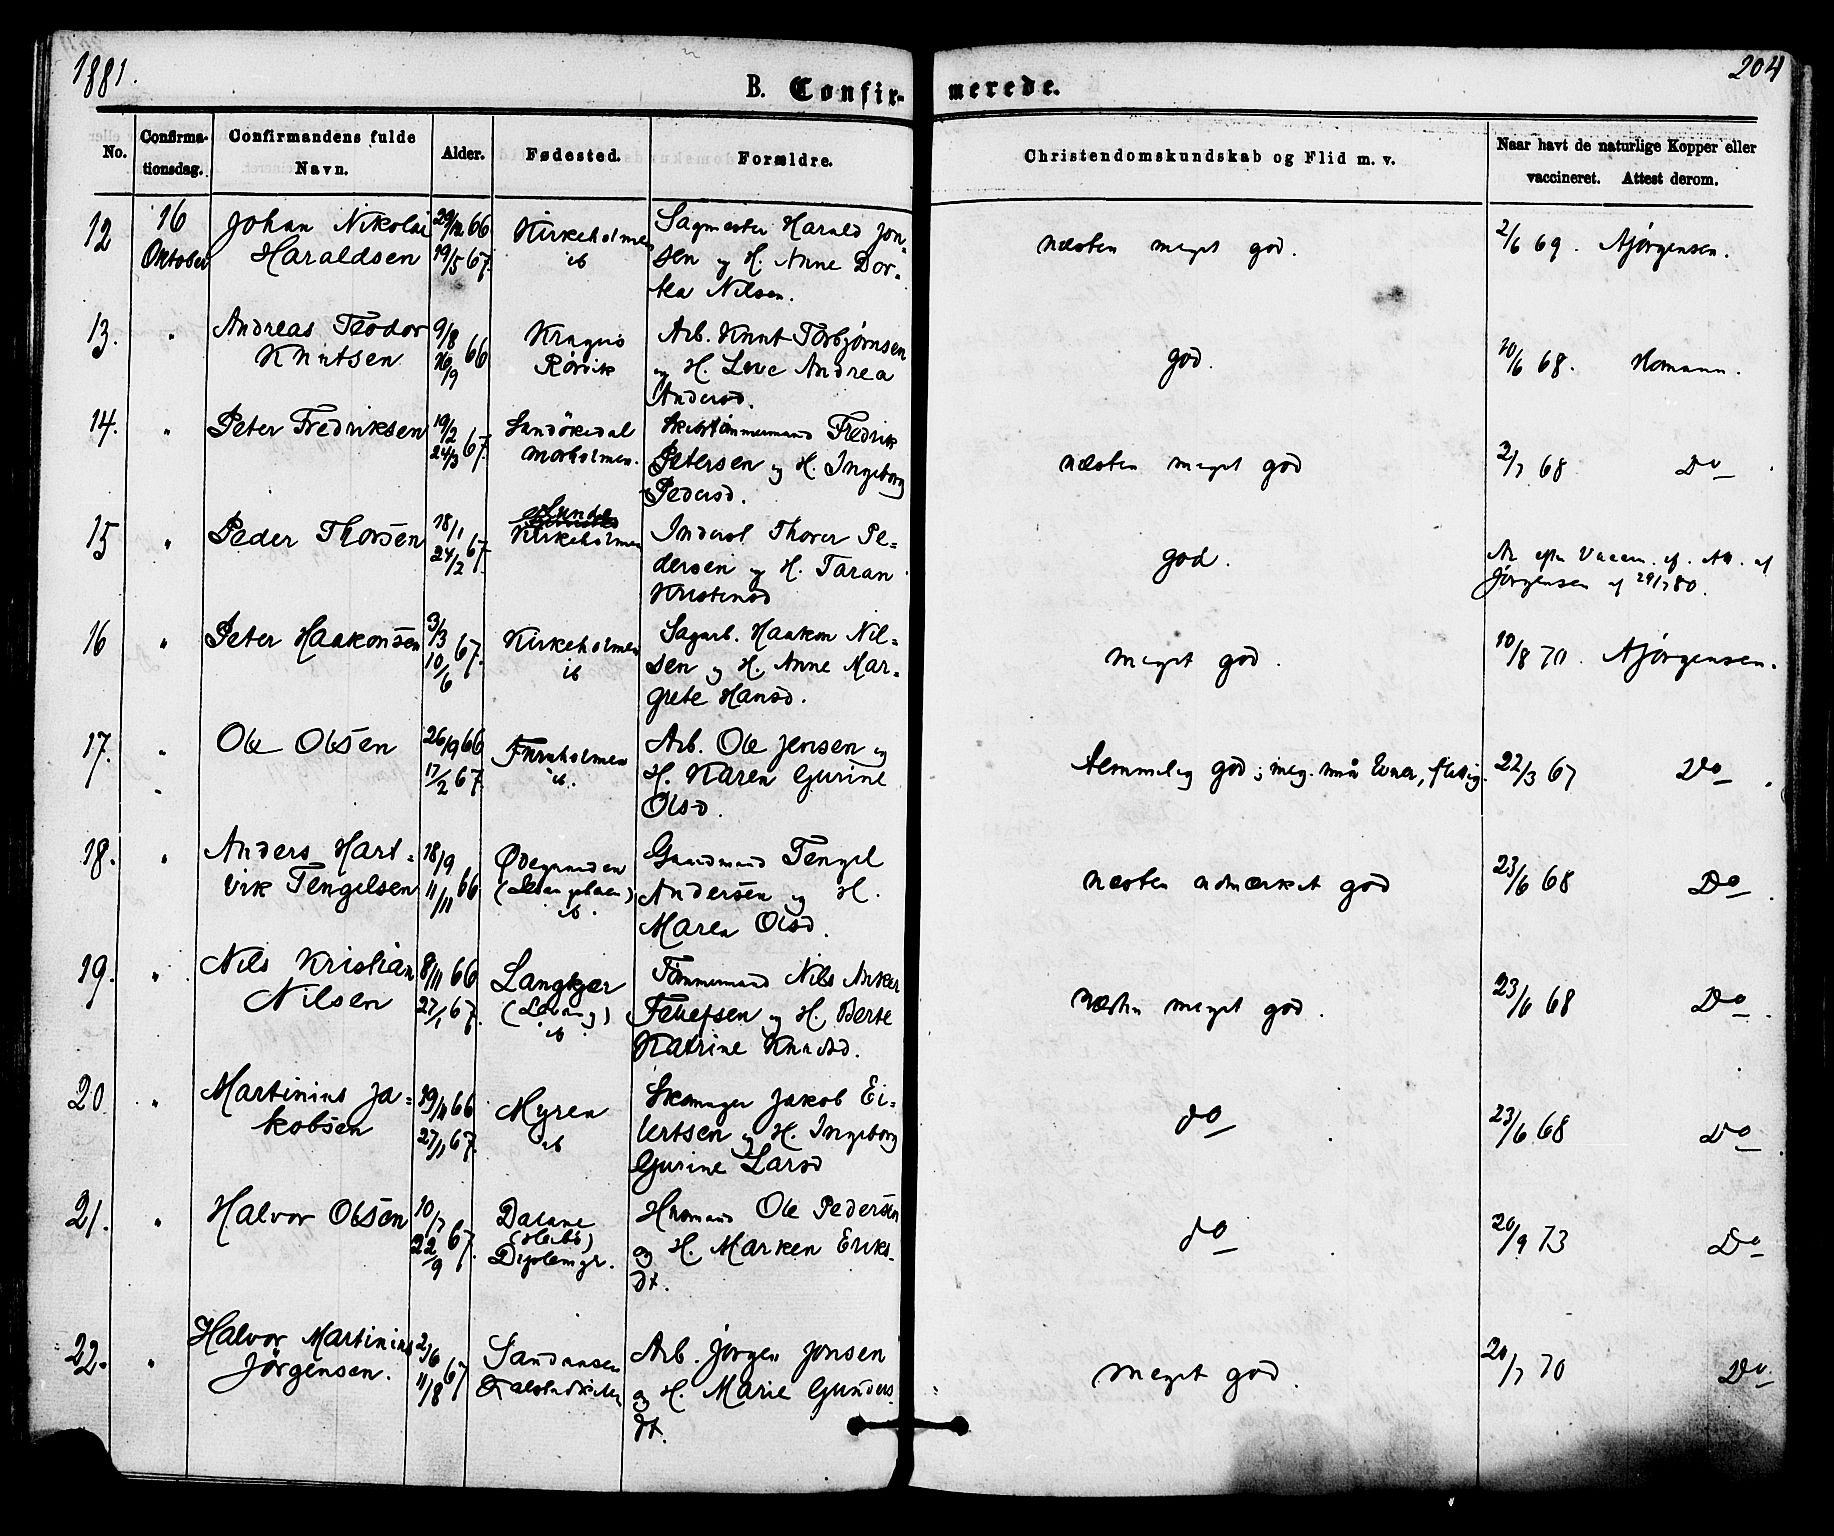 1881.
204
B. Confir- merede.
No.
Confirma-
tionsdag.
Confirmandens fulde
Navn.
Alder.
Fødested.
Forældre.
Christendomskundskab og Flid m. v.
Naar havt de naturlige Kopper eller
vaccineret. Attest derom.
12
16
Oktober
Johan Nikolai
Haraldsen
29/12 66
19/5 67.
Kirkeholmen
ib
Sagmester Harald Jon-
sen og H. Anne Dor-
tea Nilsen.
næsten meget god.
2/6 69. AJörgensen.
13.
"
Andreas Teodor
Knutsen
9/8
16/9 66
Kragerö
Rörvik
Arb. Knut Torbjørnsen
og H. Lene Andrea
Andersd.
god.
10/6 68. Homann.
14.
"
Peter Fredriksen
19/2
24/3 67.
Sandökedal
Marholmen.
Skibstömmermand Fredrik
Petersen og H. Ingeborg
Pedersd.
næsten meget god
2/7 68 Do
15
"
Peder Thorsen
18/1
24/2 67.
Kirkeholmen
Inderst Thorer Pe-
dersen og H. Taran
Kristensd
god.
efter Vaccin. Att. af
Jörgensen af 29/7 80.
16
"
Peter Haakonsen
3/3
10/6 67.
Kirkeholmen
ib
Sagarb. Haakon Nil-
sen og H. Anne Mar-
grete Hansd.
meget god.
10/8 70. AJörgensen.
17.
"
Ole Olsen
26/9 66
17/2 67.
Furuholmen
ib.
Arb. Ole Jensen og
H. Karen Gurine
Olsd.
temmelig god; meg. små Evner, flittig.
22/3 67 Do
18.
"
Anders Hart-
vik Tengelsen
18/9
11/11 66
Ödegaarden
ib.
Gaardmand Tengel
Andersen og H.
Maren Olsd.
næsten udmærket god
23/6 68 Do
19.
"
Nils Kristian
Nilsen
8/11 66
27/1 67.
Langkjær
(Levang)
ib
Tømmermand Nils Anker
Tellefsen og H. Berte
Katrine Knutsd.
næsten meget god.
23/6 68 Do
20.
"
Martinius Ja-
kobsen
19/11 66
27/1 67.
Myren
ib
Skomager Jakob Ei-
lertsen og H. Ingeborg
Gurine Larsd
do
23/6 68 Do
21.
"
Halvor Olsen
10/7
22/9 67.
Dalane
(Heibö)
Dypleingr.
Husmand Ole Pedersen
og H. Marken Eriks-
dt.
do
20/9 73 Do
22.
"
Halvor Martinius
Jörgensen.
2/6
11/8 67
Sandaasen
Arb. Jörgen Jonsen
og H. Marie Gunders
dt.
meget god.
20/7 70 Do.